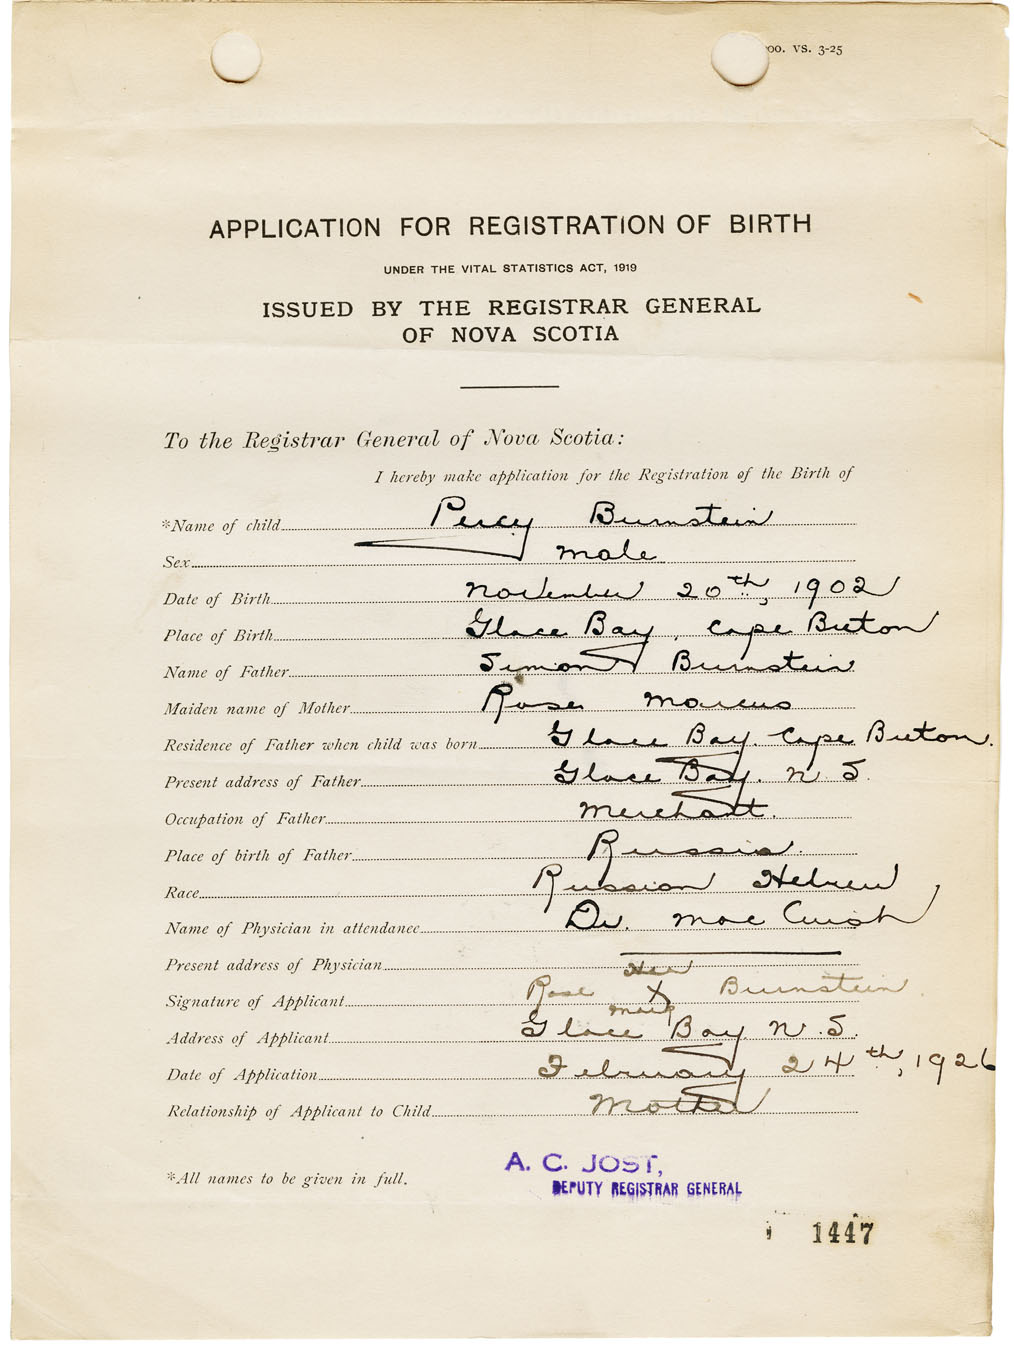 00. VS. 3-25
APPLICATION FOR REGISTRATION OF BIRTH
UNDER THE VITAL STATISTICS ACT, 1919
ISSUED BY THE REGISTRAR GENERAL
OF NOVA SCOTIA
To the Registrar General of Nova Scotia:
I hereby make application for the Registration of the Birth of
*Name of child Percy Burnstein
Sex Male
Date of Birth November 20th, 1902
Place of Birth Glace Bay, Cape Breton
Name of Father Simon Burnstein
Maiden name of Mother Rose Marcus
Residence of Father when child was born Glace Bay. Cape Breton.
Present address of Father Glace Bay. N. S.
Occupation of Father Merchant.
Place of birth of Father Russia.
Race Russian Hebrew
Name of Physician in attendance Dr. Mac Cuish
Present address of Physician
Her
Signature of Applicant Rose X Burnstein
mark
Address of Applicant Glace Bay. N. S.
Date of Application February 24th, 1926
Relationship of Applicant to Child Mother
*All names to be given in full.
A. C. JOST,
DEPUTY REGISTRAR GENERAL
1447